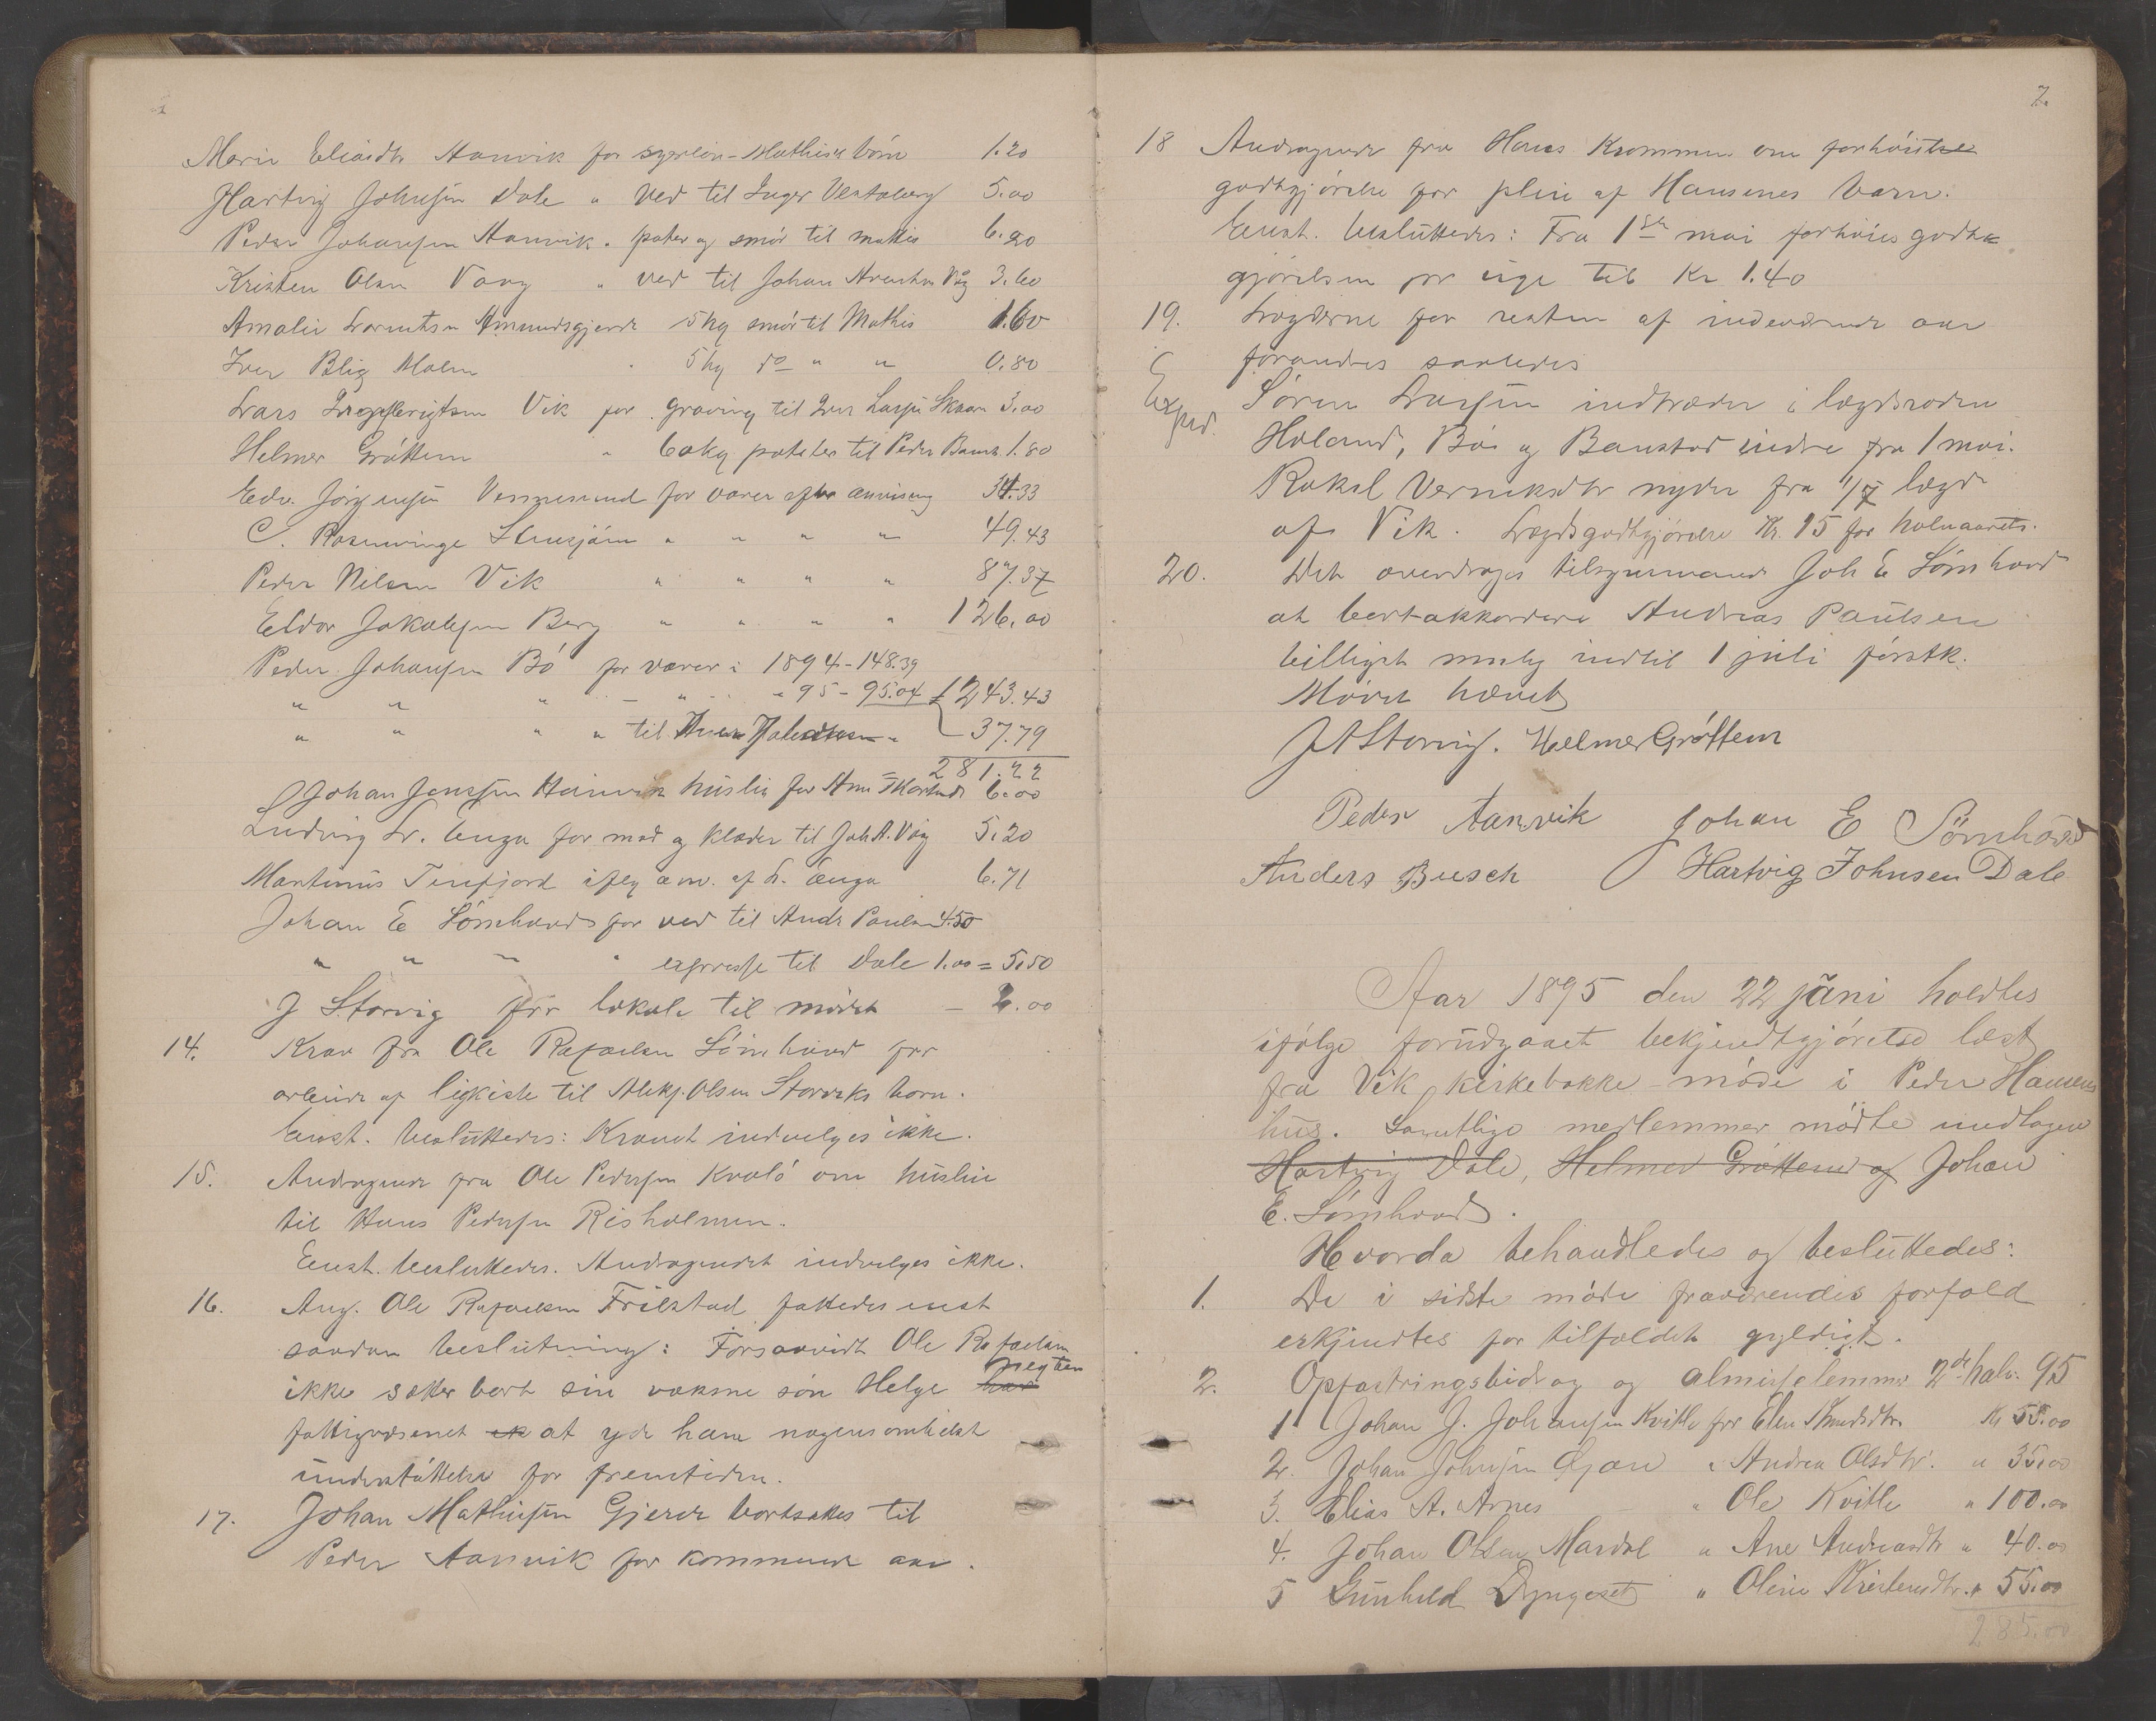 Maren Eliasdtr Aanvik for syerlön - Mathisu börn 1.20
Hartvig Johnsen Dale " Ved til Inger Vestaberg 5.00
Peder Johansen Aanvik " poter og smör til mattis 6.20
Kristen Olsen Vaag " ved til Johan Arentsen Våg 3.60
Amalie Lorentsen Amundsgjerde 5 kg smör til Mathis 1.60
Iver Blig Holm " 5 kg do " " 0.80
Lars Vik for graving til Iver Larsen Skaan 3.00
Helmer Gröttem " 60 kg poteter til Peder 1.80
Edv. Jörgensen Vennesund for varer efter anvisning 34.33
C. Rosenvinge " " " " 49.43
Peder Nilsen Vik " " " " 87.37
Eldor Jakobsen Berg " " " " 126.00
Peder Johansen Bö for varer i 1894 - 148.39
" " " - " " 95 - 95.04 243.43
" " " " til - 37.79
281.22
Johan Jensen Aanvik huslie for Ane 6.00
Ludvig Lr. Enga for mad og klæder til Joh A. Våg 5.20
Martinus Terfjord ifl anv. af L. Enga 6.71
Johan E Sömhovd for ved til Andr Paulsen 4.50
" " " " expresse til Dale 1.00 = 5.50
J Storvig for lokale til mödet - 2.00
14. Krav fra Ole Rafaelsen Sömhovd for
arbeide af ligkiste til Aleks. Olsen Storviks barn.
Enst. besluttedes: Kravet indvilges ikke.
15. Andragende fra Ole Pedersen Kvalö om huslie
til Hans Pedersen Risholmen.
Enst. besluttedes. Andragendet indvilges ikke.
16. Ang. Ole Rafaelsen Frilstad fattedes enst
saadan beslutning: Forsaavidt Ole Rafaelsen
ikke sætter bort sin voksne sön Helge har negter
fattigvæsenet at yde ham nogensomhelst
understöttelse for fremtiden.
17. Johan Mathisen Gjerde bortsættes til
Peder Aanvik for kommende aar.
2.
18 Andragende fra Hans Krommen om forhöitse
godtgjörelse for pleie af Hansenes barn.
Enst. besluttedes: Fra 1ste mai forhöies godt-
gjörelsen pr uge til Kr 1.40
19. Lægderne for resten af indeværende aar
forandres saaledes
Exped. Sören Larsen indtræder i lægdsroden
Holand, Bö og Baustad indre fra 1 mai.
Rakel Verniksdtr nyder fra 1/7 lægd
af Vik. Lægdsgodtgjörelse Kr. 15 for halvaaret.
20. Det overdrages tilsynsmand Joh E Sömhovd
at bortakkordere Andreas Paulsen
billigst mulig indtil 1 juli förstk.
Mödet hævet
J A Storvig. Helmer Gröttem
Peder Aanvik Johan E Sömhovd
Anders Busch Hartvig Johnsen Dale
Aar 1895 den 22 juni holdtes
ifölge forudgaaet bekjendtgjörelse læst
fra Vik kirkebakke - möde i Peder Hansens
hus. Samtlige medlemmer mödte undtagen
Hartvig Dale, Helmer Gröttem og Johan
E. Sömhovd.
Hvorda behandledes og besluttedes:
1. De i sidste möde fraværendes forfald
erkjendtes for tilfældet gyldigt.
2. Opfostringsbidrag og almisselemmer 2det halv. 95
1 Johan J. Johansen Kvitle for Elen Knudsdtr. Kr 55.00
2. Johan Johnsen " Andrea Olsdtr. " 35.00
3. Elias A. Arnes " Ole Kvitle " 100.00
4. Johan Olsen Mardal " Ane Andreasdtr " 40.00
5 Gunhild Dyngeset " Oline Kristensdtr. " 55.00
285.00